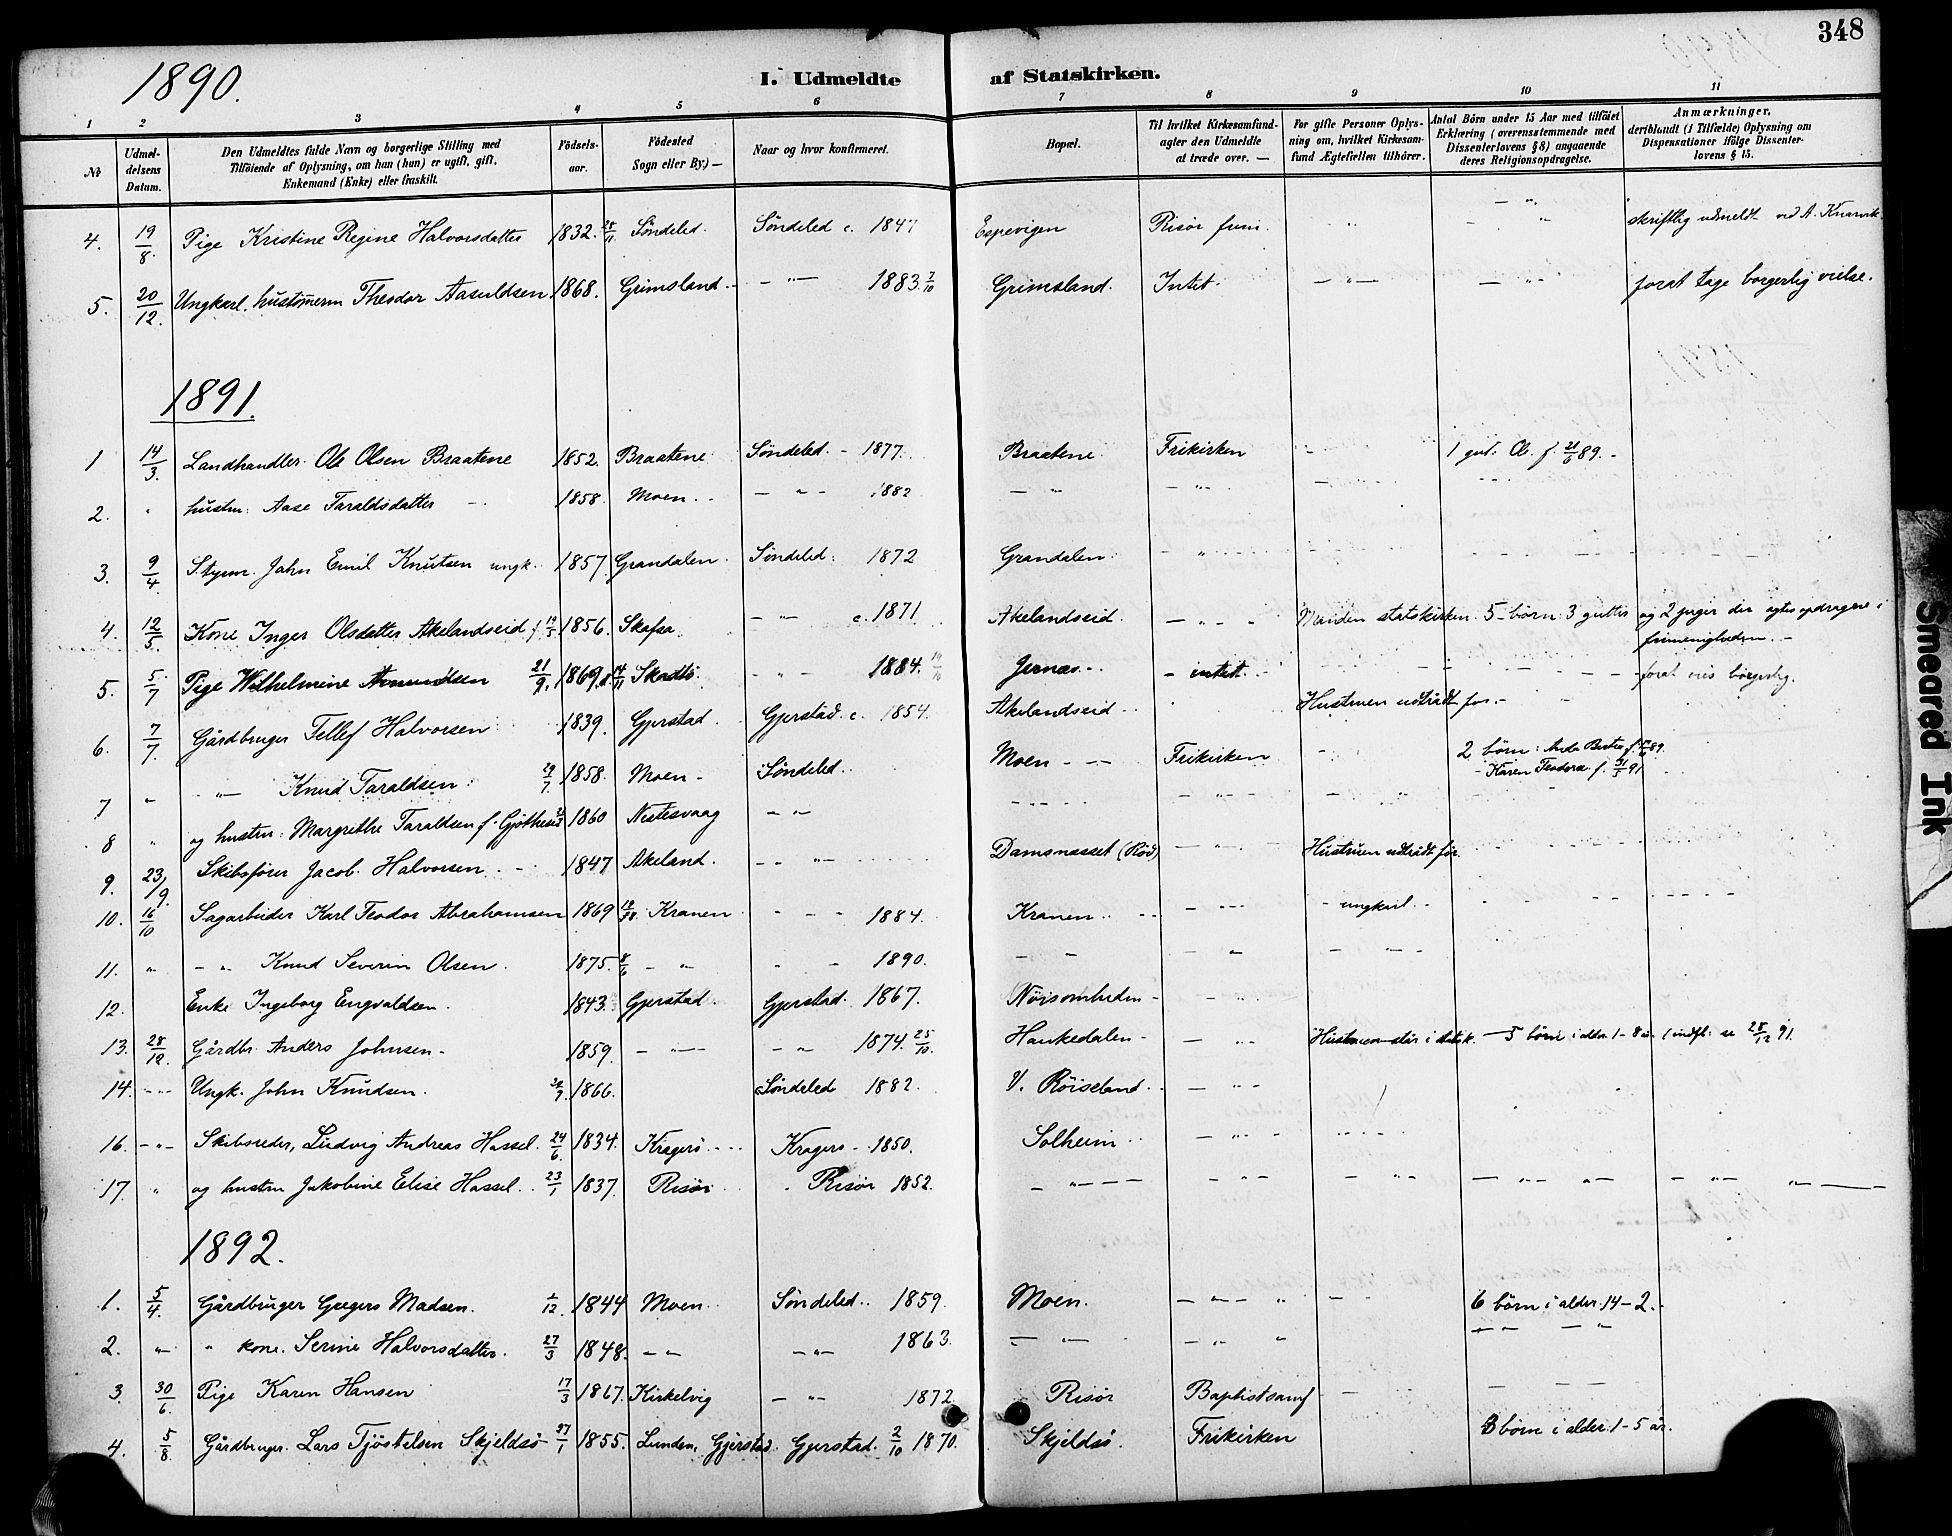 348
1890.
I. Udmeldte af Statskirken.
1 2 3 4 5 6 7 8 9 10 11
No
Udmeldelsens Datum.
Den Udmeldtes fulde Navn og borgerlige Stilling med
Tilføiende af Oplysning, om han (hun) er ugift, gift,
Enkemand (Enke) eller fraskilt.
Fødselsaar.
Fødested
Sogn eller By.) —
Naar og hvor konfirmeret.
Bopæl.
Til hvilket Kirkesamfund
agter den Udmeldte
at træde over. —
For gifte Personer Oplysning om, hvilket Kirkesamfund Ægtefællen tilhører.
Antal Børn under 15 Aar med tilføiet
Erklæring (overensstemmende med
Dissenterlovens § 8) angaaende
deres Religionsopdragelse.
Anmærkninger,
deriblandt (i Tilfælde) Oplysning om
Dispensationer ifølge Dissenterlovens § 15.
4. 19/8. Pige Kristine Regine Halvorsdatter 1832. Søndeled. Søndeled c. 1847 Espevigen Risør frim. - " - skriftlig udmeldt ved A. Knarvik
5. 20/12. Ungkarl. Theodor Aasuldsen 1868. Grimsland - - " - 1883 7/10 Grimsland. Intet. - " - - " - forat tage borgerlig vielse.
1891.
1 14/3. Landhandler Ole Olsen Braatene 1852. Braatene Søndeled - 1877. Braatene Frikirken - 1 gut. Ole f. 21/6 89. -
2. " hustru: Aase Taraldsdatter - 1858. Moen - " - 1882 - " - " -
3. 9/4. Styrm. John Emil Knutsen ungk. 1857. Grandalen Søndeled. 1872 Grandalen - " -
4. 12/5. Kone Inger Olsdatter Akelandseid f. 1856. Skafsa. - " - c. 1871 Akelandseid. - " - Manden statskirken. 5 børn: 3 gutter og 2 piger der agtes opdragne i
frimenigheden. -
5. 5/7 Pige Wilhelmine Amundsen 21/9. 1869. 14/11 - " - 1884. Jernæs. - - intet. - forat vies borgerlig.
6. 7/7. Gårdbruger Tellef Halvorsen 1839. Gjerstad. Gjerstad. c. 1854. Akelandseid - Hustruen udtrådt før. -
7 " - " - Knud Taraldsen: 29/7 1858. Moen - Søndeled. Moen - - Frikirken - 2 børn:
- Karen Teodora f. 91
8 " og hustru: Margrethe Taraldsen f. 1860 Nestesvaag - " - - " -
9. 23/9. Skibsfører Jacob Halvorsen. - 1847 Akeland. - " - Damsnæsset (Rød) - " - Hustruen udtrådt før.
10. 16/10 Sagarbeider Karl Teodor Abrahamsen 1869 Kranen - - - 1884. Kranen - - " - - ungkarl. -
11. " - " Knud Severin Olsen. 1875. 8/6 - " - - 1890. - - - " - - -
12. Enke Ingeborg Engvaldsen. 1843. Gjerstad. Gjerstad. 1867. Nøisomheden - - " -
13. 28/12. Gårdbr. Anders Johnsen - 1859. - " - - " 1874. 25/10. Haukedalen - - " - Hustruen står i statsk. - 5 børn i alder 1 - 8 år (indfl. se 28/12 91.
14. - " - Ungk. John Knudsen. 1866. Søndeled 1882. V. Røiseland. - " -
16. - " - Skibsreder, Ludvig Andreas Hassel. 24/6. 1834. Kragerø. Kragerø - 1850. Solheim - " -
17. " og hustru Jakobine Elise Hassel. 23/1 1837. Risør Risør 1852. - " - - - " - - " - - " -
1892.
1. 5/4. Gårdbruger Gregers Madsen. 1/12. 1844 Moen. Søndeled. 1859. Moen. - " - " - 6 børn i alder 14 - 2. -
2. " " kone. Serine Halvorsdatter. 27/3 1848. - " - " - 1863. - " - - " " - - - " -
3. 30/6 Pige Karen Hansen 17/3 1867. Kirkelvig - " - 1872 Risør Baptistsamf - - - -
4. 5/8. Gårdbruger. Lars Tjøstelsen Skjeldsø 27/1 1855. Lunden, Gjerstad. Gjerstad. 2/10 1870. Skjeldsø. Frikirken 3 børn i alder 1 - 5 år.
Smeared Ink